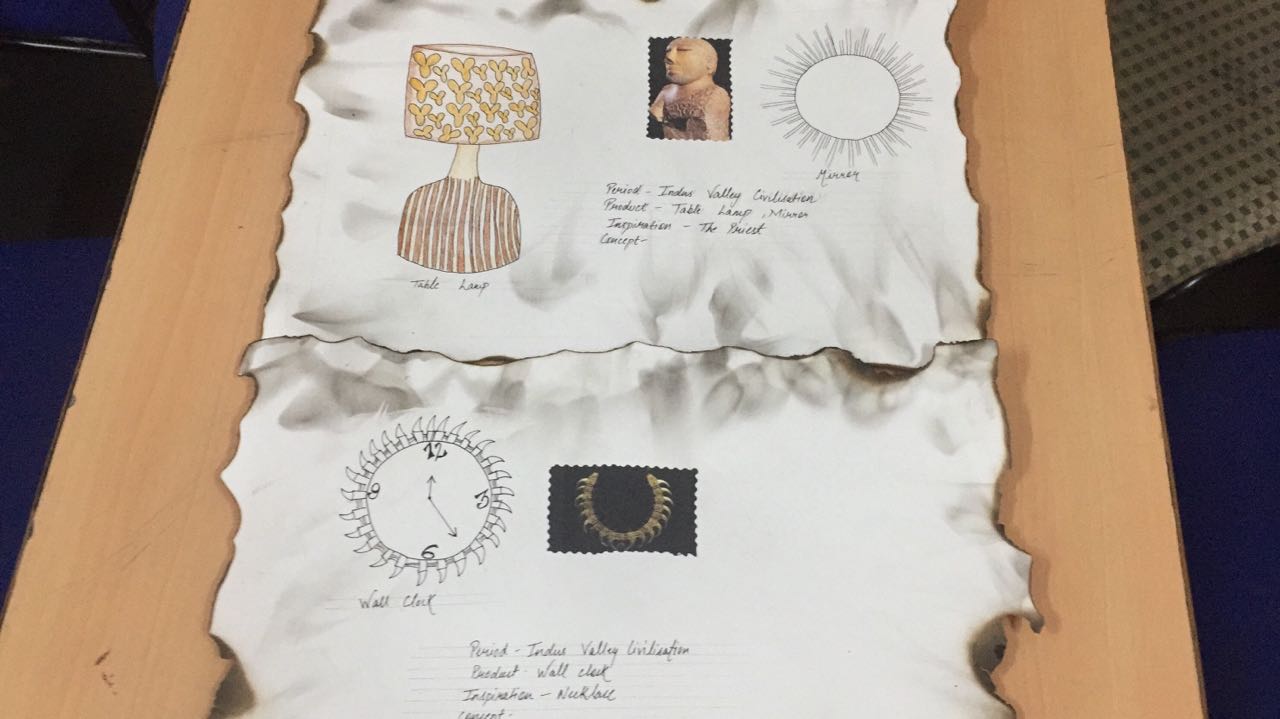 Mirror
Period - Indus Valley Civilisation
Product - Table Lamp, Mirror
Inspiration - The Priest
Concept-
Table Lamp
12
9
3
6
Wall Clock
Period - Indus Valley Civilisation
Product - Wall clock
Inspiration - Necklace
Concept -